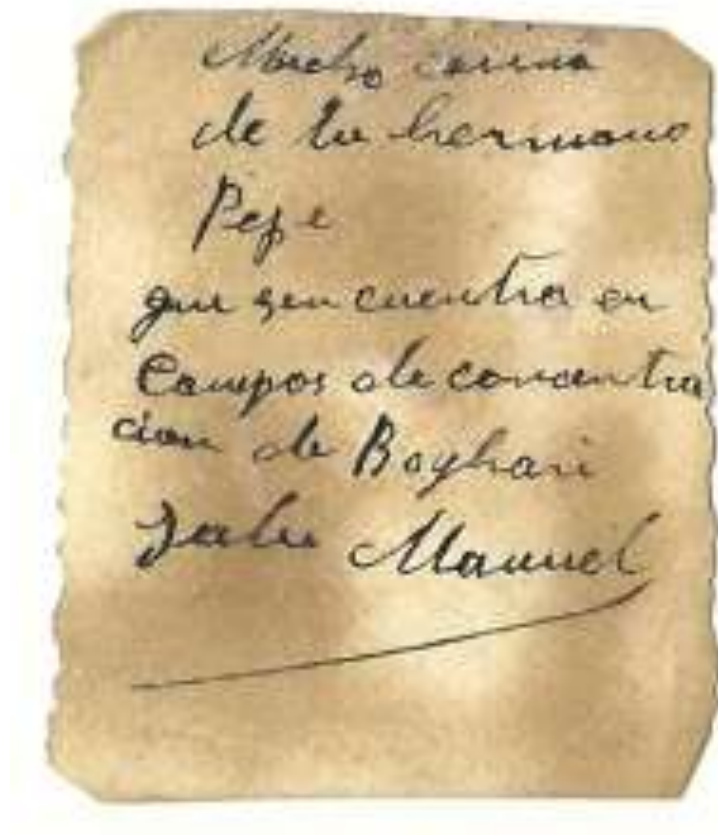 Mucho cariño
de tu hermano
Pepe
que se encuentra en
Campos de concentra
cion de Boghari
Manuel